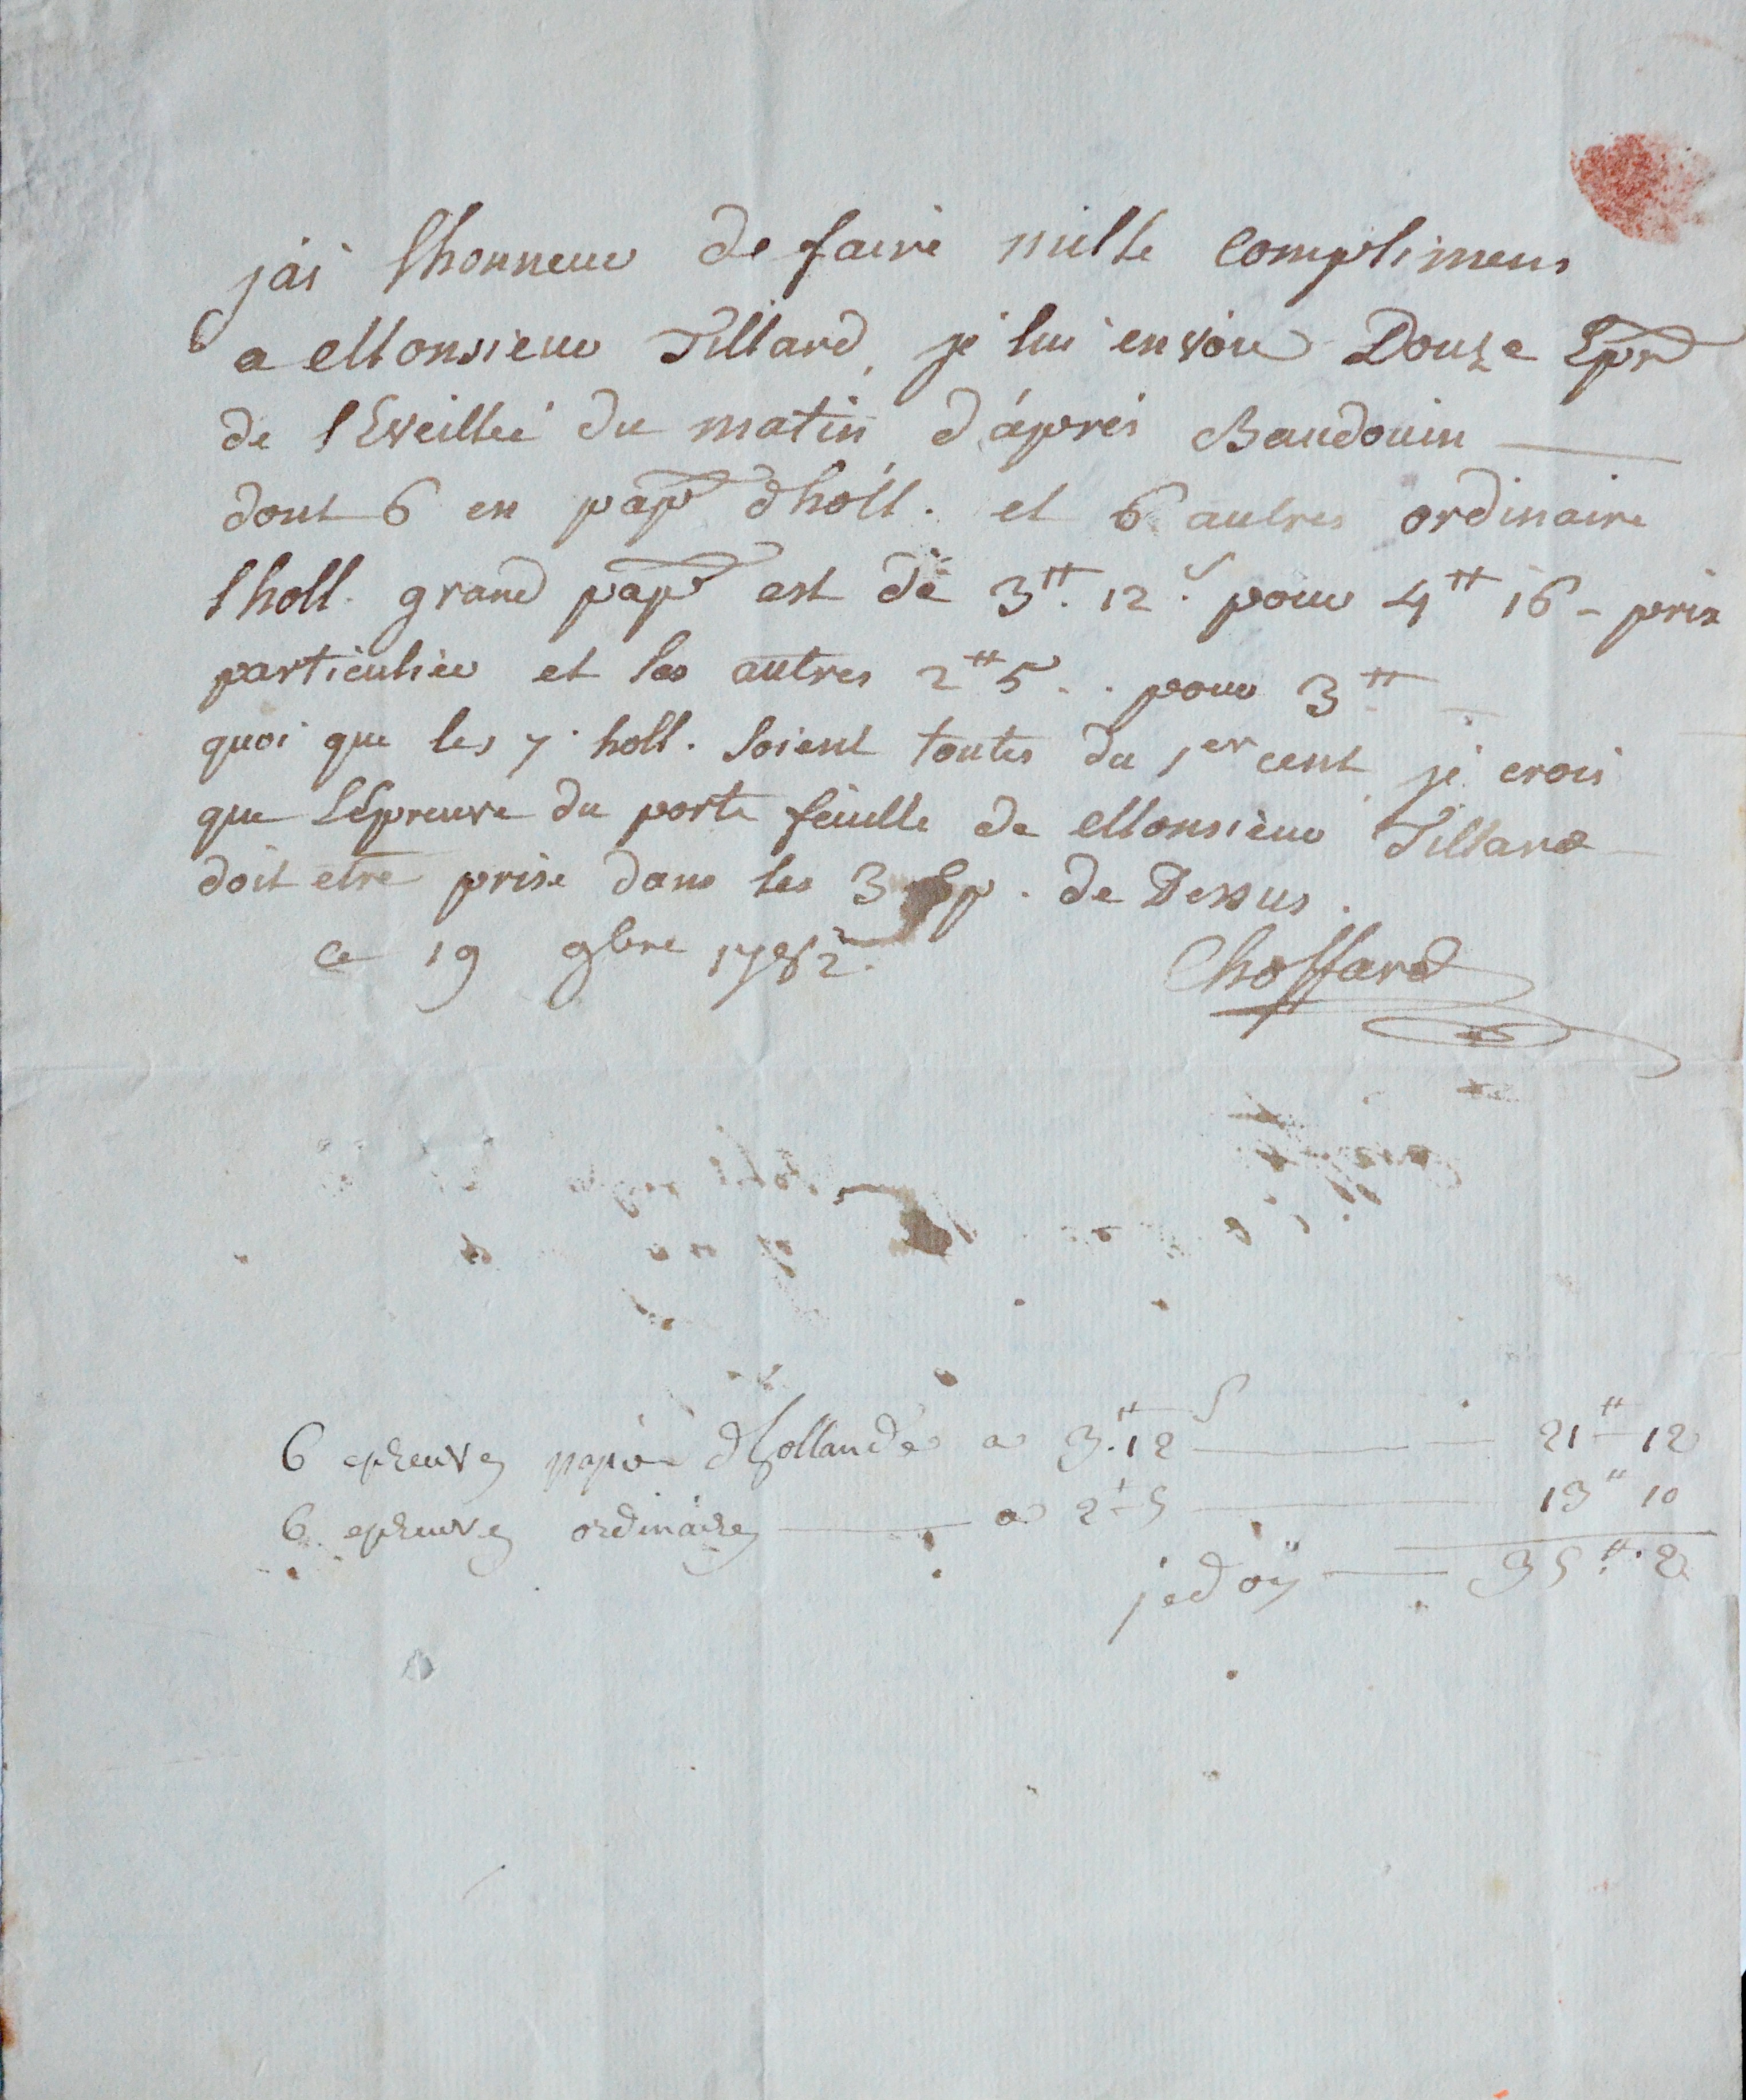 jai lhonneur de faire mille complimens
a Monsieur Tillard, je lui envoie Douze Epr
de l'Eveillée du matin d'après Baudouin
dont 6 en papr dholl. et 6 autres ordinaire
lholl. grand papr est de 3tt. 12s pour 4tt 16 - prix
particulier et les autres 2tt 5 .. pour 3tt
quoi que les 7. holl. Soient toutes du 1er cent je crois
que l'Epreuve du porte feuille de Monsieur Tillard
doit etre prise dans les 3 Ep. de Dessus.
ce 19 9bre 1782.
Choffard
6 epreuves papier dhollande a 3tt.12s 21tt 12
6 epreuves ordinaires a 2tt 5 13tt 10
je doy 35tt. 2